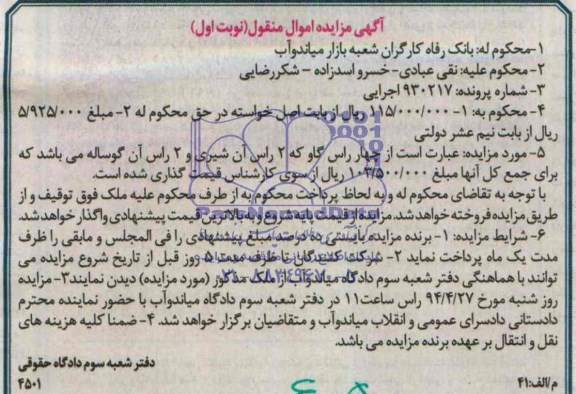 آگهی مزایده اموال منقول(نوبت اول)
۱-محکوم له: بانک رفاه کارگران شعبه بازار میاندوآب
۲- محکوم علیه: نقی عبادی- خسرو اسدزاده - شکررضایی
۳- شماره پرونده: ۹۳۰۲۱۷ اجرایی
۴- محکوم به: ۱- ۱۱۵/۰۰۰/۰۰۰ ریال از بابت اصل خواسته در حق محکوم له ۲- مبلغ ۵/۹۲۵/۰۰۰
ریال از بابت نیم عشر دولتی
۵- مورد مزایده: عبارت است از چهار راس گاو که ۲ راس آن شیری و ۲ راس آن گوساله می باشد که
برای جمع کل آنها مبلغ ۱۰۳/۵۰۰/۰۰۰ ریال از سوی کارشناس قیمت گذاری شده است.
با توجه به تقاضای محکوم له و به لحاظ پرداخت محکوم به از طرف محکوم علیه ملک فوق توقیف و از
طریق مزایده فروخته خواهد شد. مزایده از قیمت پایه شروع و به بالاترین قیمت پیشنهادی واگذار خواهد شد.
۶- شرایط مزایده: ۱- برنده مزایده بایستی ده درصد مبلغ پیشنهادی را فی المجلس و مابقی را ظرف
مدت یک ماه پرداخت نماید ۲- شرکت کنندگان تا ظرف مدت ۵ روز قبل از تاریخ شروع مزایده می
توانند با هماهنگی دفتر شعبه سوم دادگاه میاندوآب از ملک مذکور (مورد مزایده) دیدن نمایند۳- مزایده
روز شنبه مورخ ۹۴/۴/۲۷ راس ساعت۱۱ در دفتر شعبه سوم دادگاه میاندوآب با حضور نماینده محترم
دادستانی دادسرای عمومی و انقلاب میاندوآب و متقاضیان برگزار خواهد شد. ۴- ضمنا کلیه هزینه های
نقل و انتقال بر عهده برنده مزایده می باشد.
دفتر شعبه سوم دادگاه حقوقی
م/الف:۴۱
۴۵۰۱